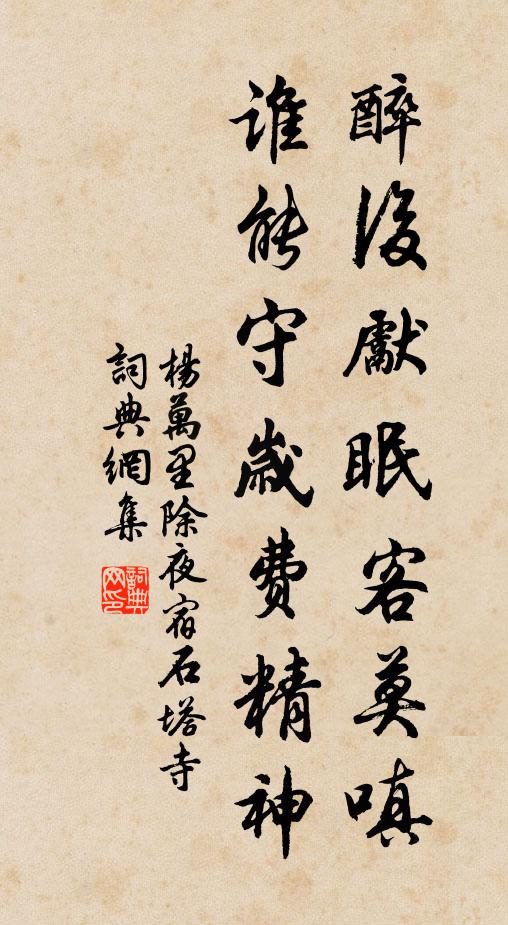 醉後獻眠客莫嗔
誰能守歲費精神
楊萬里除夜宿石塔寺
詞典網集
詞典
网印